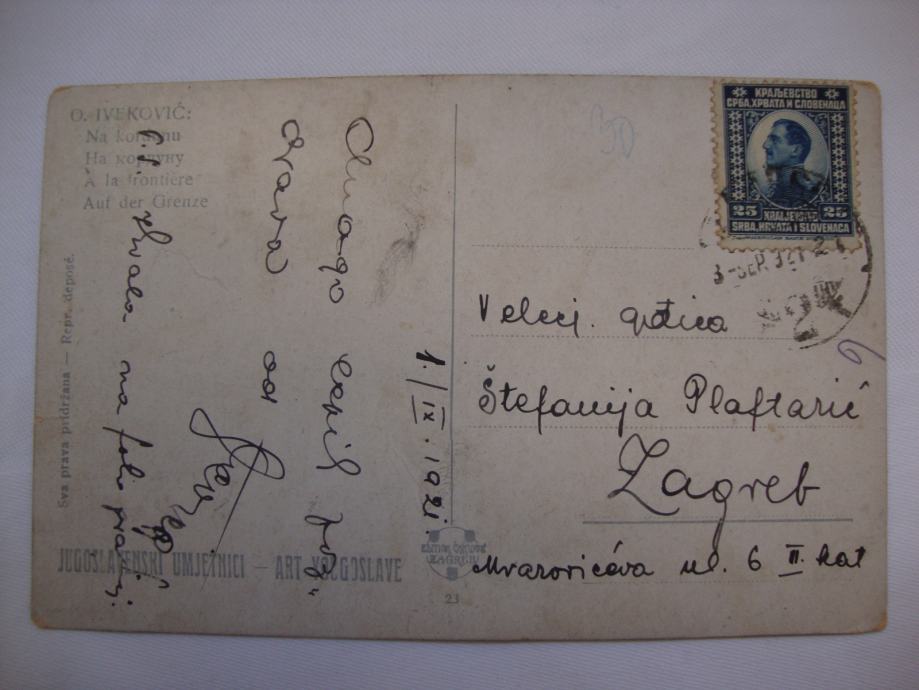 O. IVEKOVIĆ:
Na kordunu
На кордуну
À la frontière
Auf der Grenze
Sva prava pridržana — Repr. déposé.
JUGOSLAVENSKI UMJETNICI — ART YOUGOSLAVE
ZAGREB
23
КРАЉЕВСТВО
СРБА, ХРВАТА И СЛОВЕНАЦА
25 KRALJEVSTVO 25
SRBA, HRVATA I SLOVENACA
1./IX. 1921
Mnogo
od
hvala na
Velecj. gđica
Štefanija Plaftarić
Zagreb
Mrazovićeva ul. 6 II. kat
6